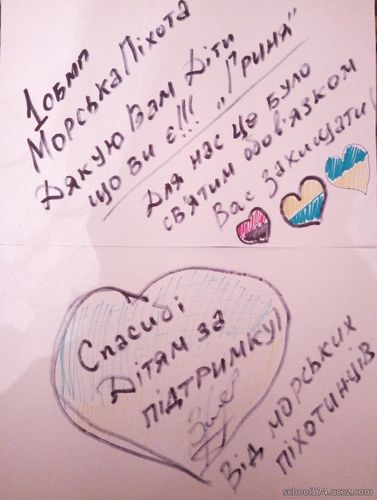 1 обмп
Морська Піхота
Дякую Вам Діти
що ви є!!! "Гриня"
Для нас це було
св'ятим обов'язком
Вас захищати!
Спасибі
Дітям за
підтримку!
Від морських
піхотинців
school174.ucoz.com